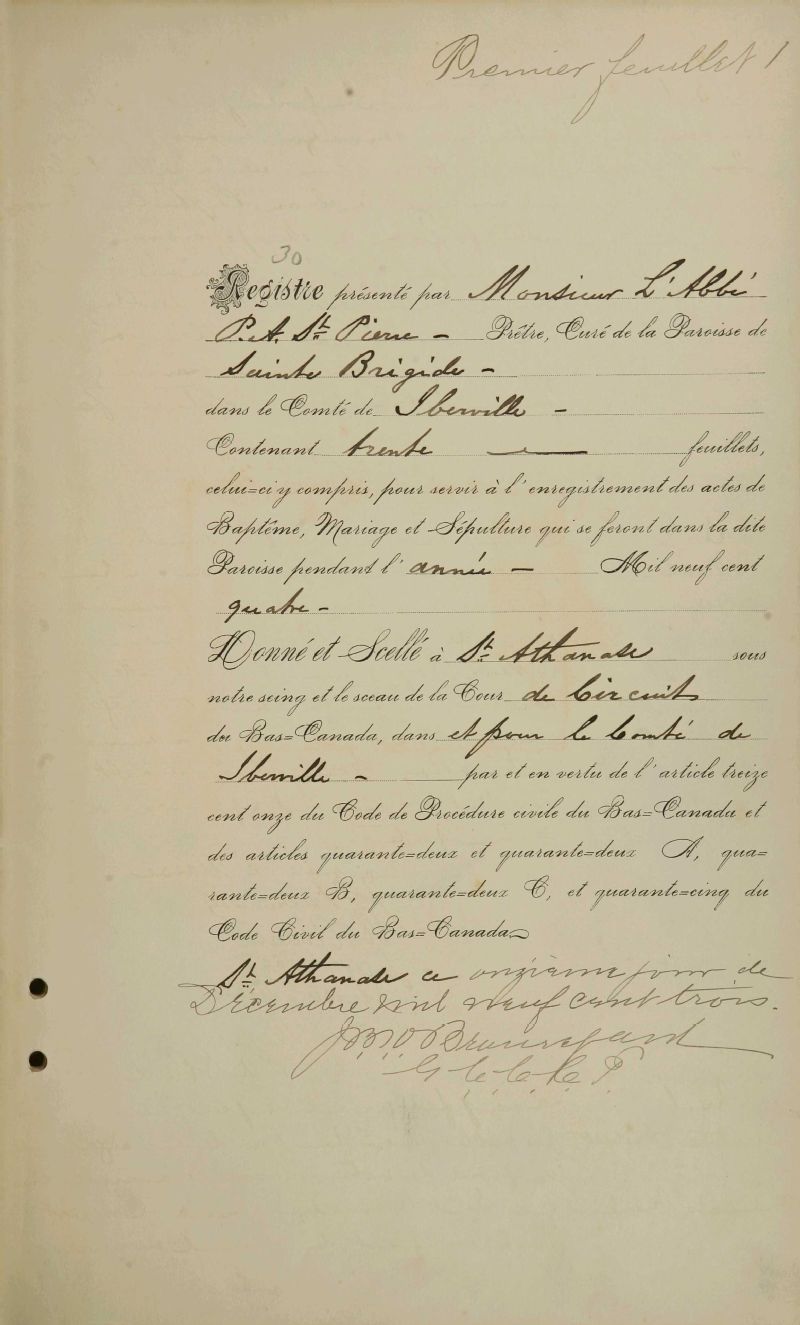 Premier feuillet 1
30
Registre présenté par Monsieur L'Abbé
P. A. St. Pierre – Prêtre, Curé de la Paroisse de
Sainte Brigide –
dans le Comté de Iberville –
Contenant trente — feuillets,
celui=ci y compris, pour servir à l'enregistrement des actes de
Baptême, Mariage et Sépulture qui se feront dans la dite
Paroisse pendant l'année – Mil neuf cent
quatre –
Donné et Scellé à St. Athanase sous
notre seing et le sceau de la Cour de Circuit
du Bas=Canada, dans et pour le Comté de
Iberville – par et en vertu de l'article treize
cent onze du Code de Procédure civile du Bas=Canada et
des articles quarante=deux et quarante=deux A, qua=
rante=deux B, quarante=deux C, et quarante=cinq du
Code Civil du Bas=Canada
St. Athanase ce onzième jour de
Décembre mil neuf cent trois.
G. C. C. C. I.